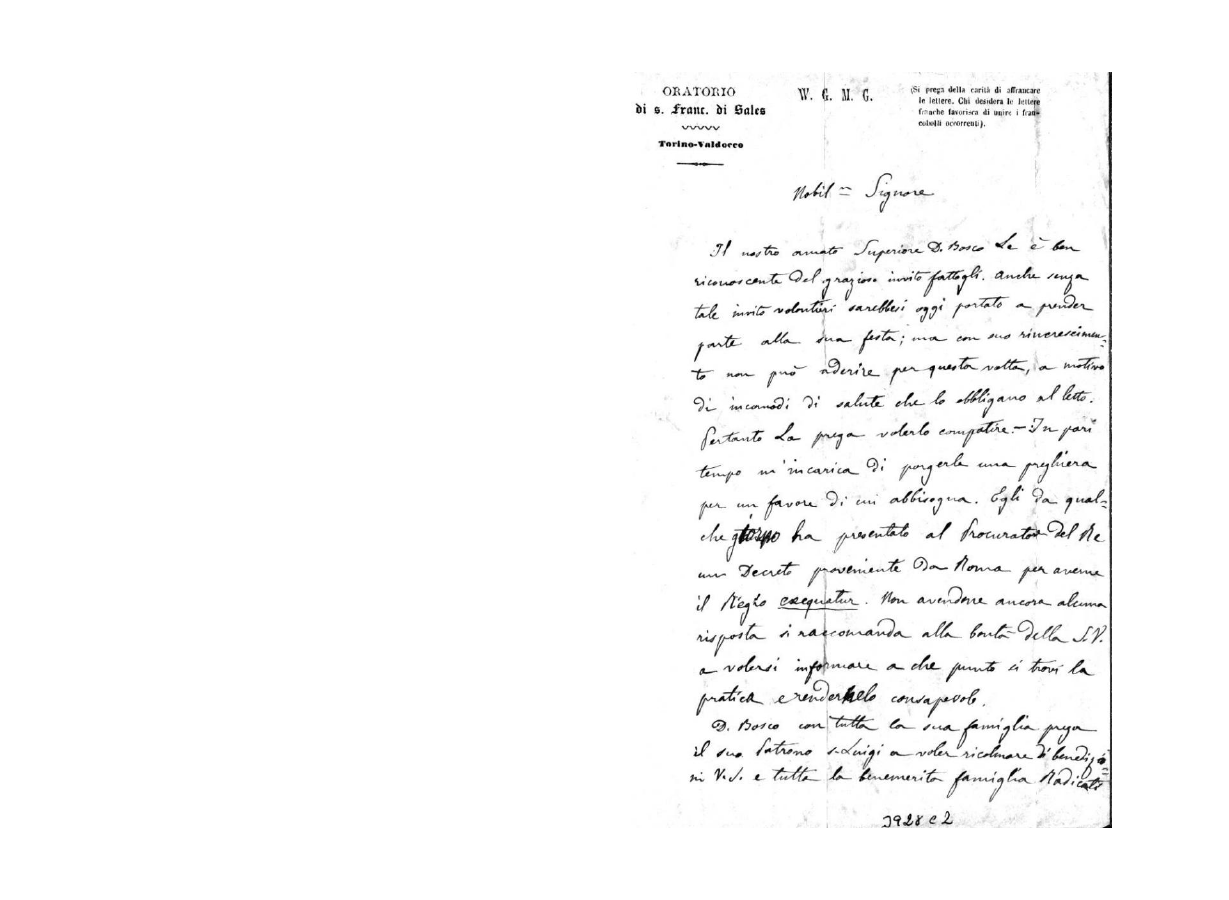 ORATORIO
di s. Franc. di Sales
Torino-Valdocco
W. G. M. G.
(Si prega della carità di affrancare
le lettere. Chi desidera le lettere
franche favorisca di unire i fran-
cobolli occorrenti).
Nobil = Signore
Il nostro amato Superiore D. Bosco Le è ben
riconoscente del grazioso invito fattogli. Anche senza
tale invito volontieri sarebbesi oggi portato a prender
parte alla sua festa; ma con suo rincrescimen=
to non può aderire per questa volta, a motivo
di incomodi di salute che lo obbligano al letto.
Pertanto La prega volerlo compatire. – In pari
tempo m'incarica di porgerle una preghiera
per un favore di cui abbisogna. Egli da qual=
che ha presentato al Procurator del Re
un Decreto proveniente da Roma per averne
il Regio exequatur. Non avendone ancora alcuna
risposta si raccomanda alla bontà della S.V.
a volersi informare a che punto si trovi la
pratica e renderlo consapevole.
D. Bosco con tutta la sua famiglia prega
il suo Patrono s. Luigi a voler ricolmare di benedizio=
ni V.S. e tutta la benemerita famiglia Radicati
3928 C 2